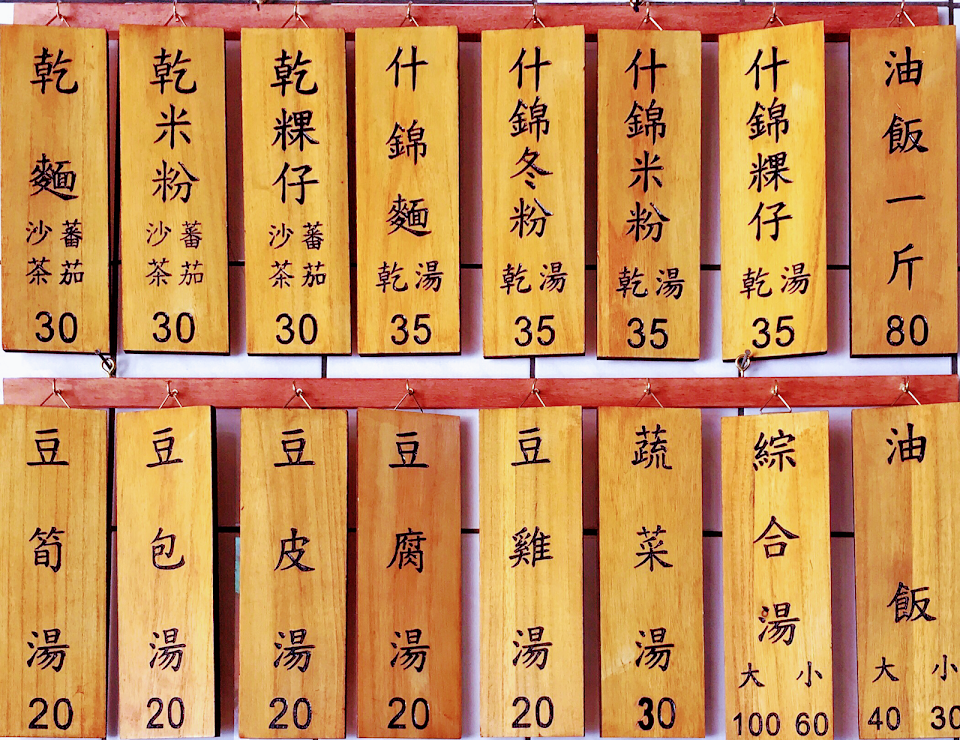 乾麵
沙茶
蕃茄
30
乾米粉
沙茶
蕃茄
30
乾粿仔
沙茶
蕃茄
30
什錦麵
乾 湯
35
什錦冬粉
乾 湯
35
什錦米粉
乾 湯
35
什錦粿仔
乾 湯
35
油飯一斤
80
豆筍湯
20
豆包湯
20
豆皮湯
20
豆腐湯
20
豆雞湯
20
蔬菜湯
30
綜合湯
大 小
100 60
油飯
大 小
40 30